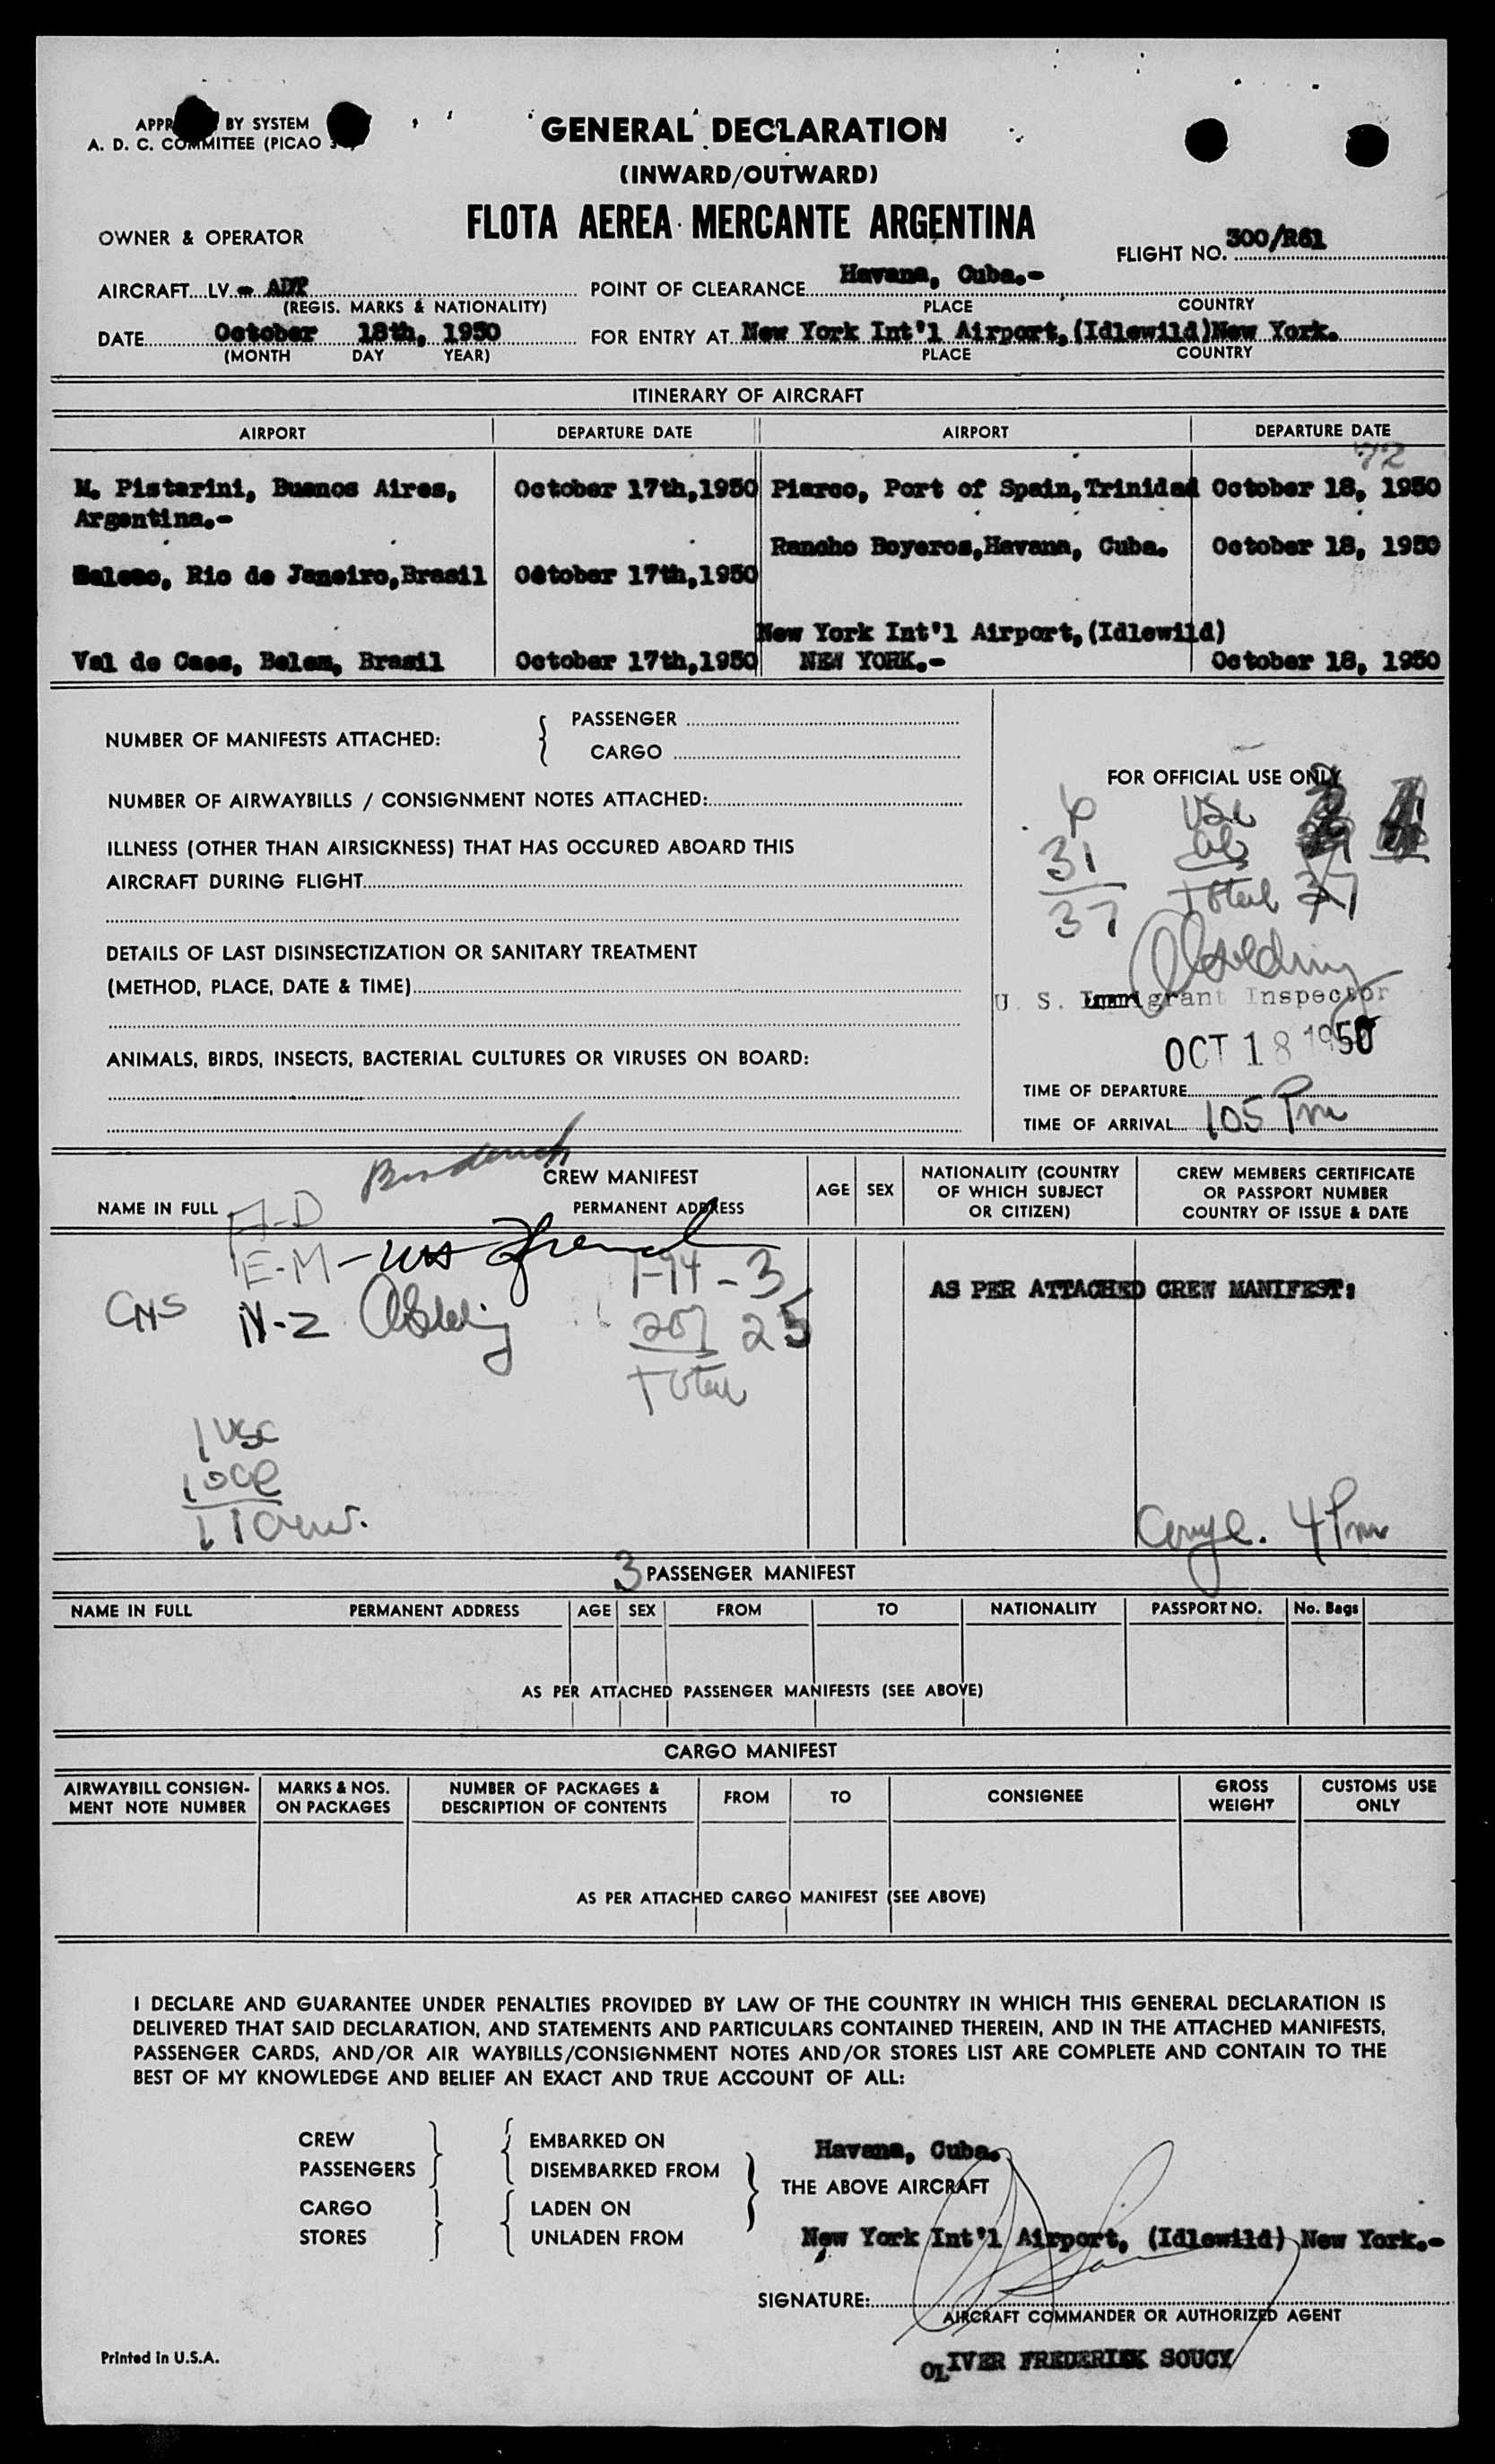 APPR BY SYSTEM
A. D. C. COMMITTEE (PICAO
GENERAL DECLARATION
(INWARD/OUTWARD)
FLOTA AEREA MERCANTE ARGENTINA
OWNER & OPERATOR
FLIGHT NO. 300/R61
AIRCRAFT....LV.- ADP
(REGIS. MARKS & NATIONALITY)
POINT OF CLEARANCE Havana, Cuba.-
PLACE COUNTRY
DATE October 18th, 1950
(MONTH DAY YEAR)
FOR ENTRY AT New York Int'l Airport,(Idlewild)New York.
PLACE COUNTRY
ITINERARY OF AIRCRAFT
AIRPORT DEPARTURE DATE AIRPORT DEPARTURE DATE
72
M. Pistarini, Buenos Aires, October 17th,1950 Piarco, Port of Spain,Trinidad October 18, 1950
Argentina.-
Rancho Boyeros,Havana, Cuba. October 18, 1950
Galeao, Rio de Janeiro,Brasil October 17th,1950
New York Int'l Airport,(Idlewild)
Val de Caes, Belem, Brasil October 17th,1950 NEW YORK.- October 18, 1950
NUMBER OF MANIFESTS ATTACHED: { PASSENGER
CARGO
NUMBER OF AIRWAYBILLS / CONSIGNMENT NOTES ATTACHED:
ILLNESS (OTHER THAN AIRSICKNESS) THAT HAS OCCURED ABOARD THIS
AIRCRAFT DURING FLIGHT
DETAILS OF LAST DISINSECTIZATION OR SANITARY TREATMENT
(METHOD, PLACE, DATE & TIME)
ANIMALS, BIRDS, INSECTS, BACTERIAL CULTURES OR VIRUSES ON BOARD:
FOR OFFICIAL USE ONLY
6 USC
31
37 Total 37
U. S. Immigrant Inspector
OCT 18 1950
TIME OF DEPARTURE
TIME OF ARRIVAL 105 Pm
CREW MANIFEST
NAME IN FULL PERMANENT ADDRESS AGE SEX NATIONALITY (COUNTRY OF WHICH SUBJECT OR CITIZEN) CREW MEMBERS CERTIFICATE OR PASSPORT NUMBER COUNTRY OF ISSUE & DATE
A-D
E-M
I-94 - 3
N-Z
257 25
Total
AS PER ATTACHED CREW MANIFEST:
1 USC
10
11
4 Pm
3
PASSENGER MANIFEST
NAME IN FULL PERMANENT ADDRESS AGE SEX FROM TO NATIONALITY PASSPORT NO. No. Bags
AS PER ATTACHED PASSENGER MANIFESTS (SEE ABOVE)
CARGO MANIFEST
AIRWAYBILL CONSIGN- MENT NOTE NUMBER MARKS & NOS. ON PACKAGES NUMBER OF PACKAGES & DESCRIPTION OF CONTENTS FROM TO CONSIGNEE GROSS WEIGHT CUSTOMS USE ONLY
AS PER ATTACHED CARGO MANIFEST (SEE ABOVE)
I DECLARE AND GUARANTEE UNDER PENALTIES PROVIDED BY LAW OF THE COUNTRY IN WHICH THIS GENERAL DECLARATION IS
DELIVERED THAT SAID DECLARATION, AND STATEMENTS AND PARTICULARS CONTAINED THEREIN, AND IN THE ATTACHED MANIFESTS,
PASSENGER CARDS, AND/OR AIR WAYBILLS/CONSIGNMENT NOTES AND/OR STORES LIST ARE COMPLETE AND CONTAIN TO THE
BEST OF MY KNOWLEDGE AND BELIEF AN EXACT AND TRUE ACCOUNT OF ALL:
CREW EMBARKED ON Havana, Cuba.
PASSENGERS DISEMBARKED FROM
THE ABOVE AIRCRAFT
CARGO LADEN ON
STORES UNLADEN FROM New York Int'l Airport, (Idlewild) New York.-
SIGNATURE:
AIRCRAFT COMMANDER OR AUTHORIZED AGENT
OLIVER FREDERICK SOUCY
Printed in U.S.A.